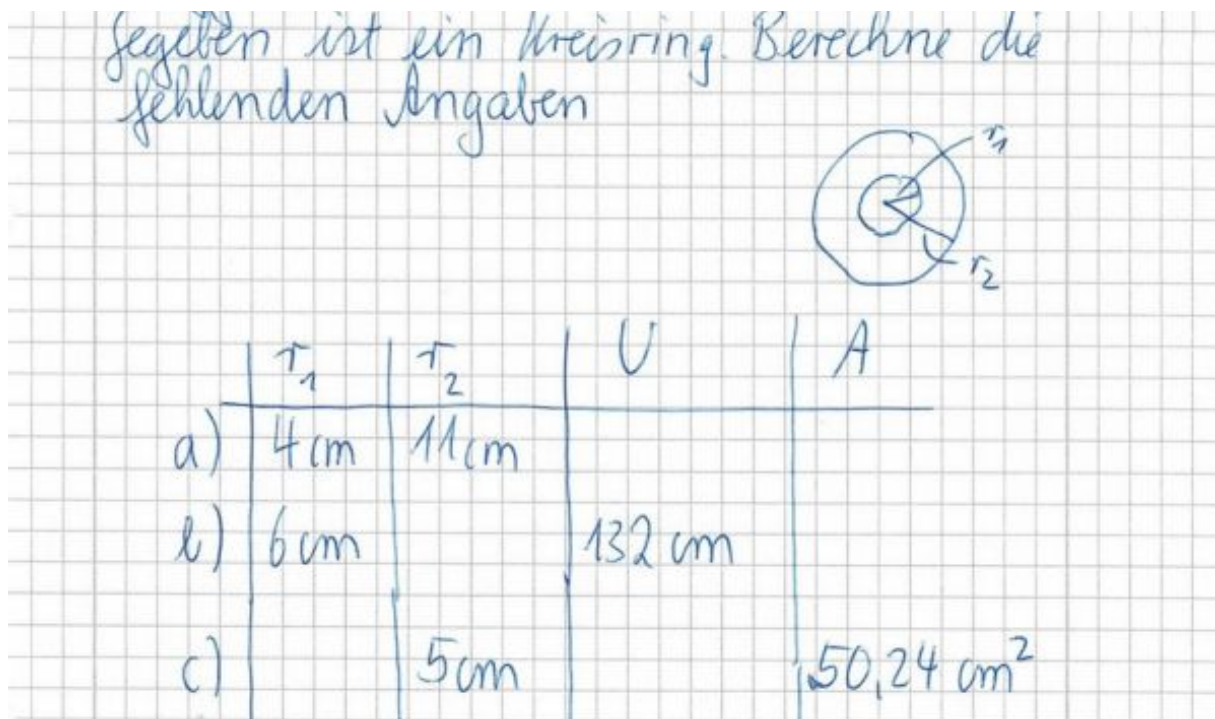 Gegeben ist ein Kreisring. Berechne die
fehlenden Angaben
r₁
r₂
r₁ r₂ U A
a) 4 cm 11 cm
b) 6 cm 132 cm
c) 5 cm 50,24 cm²